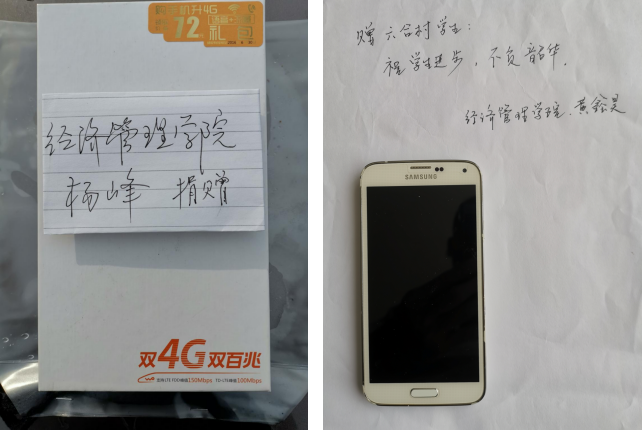 升4G
72
礼包
经济管理学院
杨峰 捐赠
双4G双百兆
150Mbps TD-LTE峰值100Mbps
赠 六合村学生:
祝学生进步,不负韶华.
经济管理学院 黄鑫昊
SAMSUNG